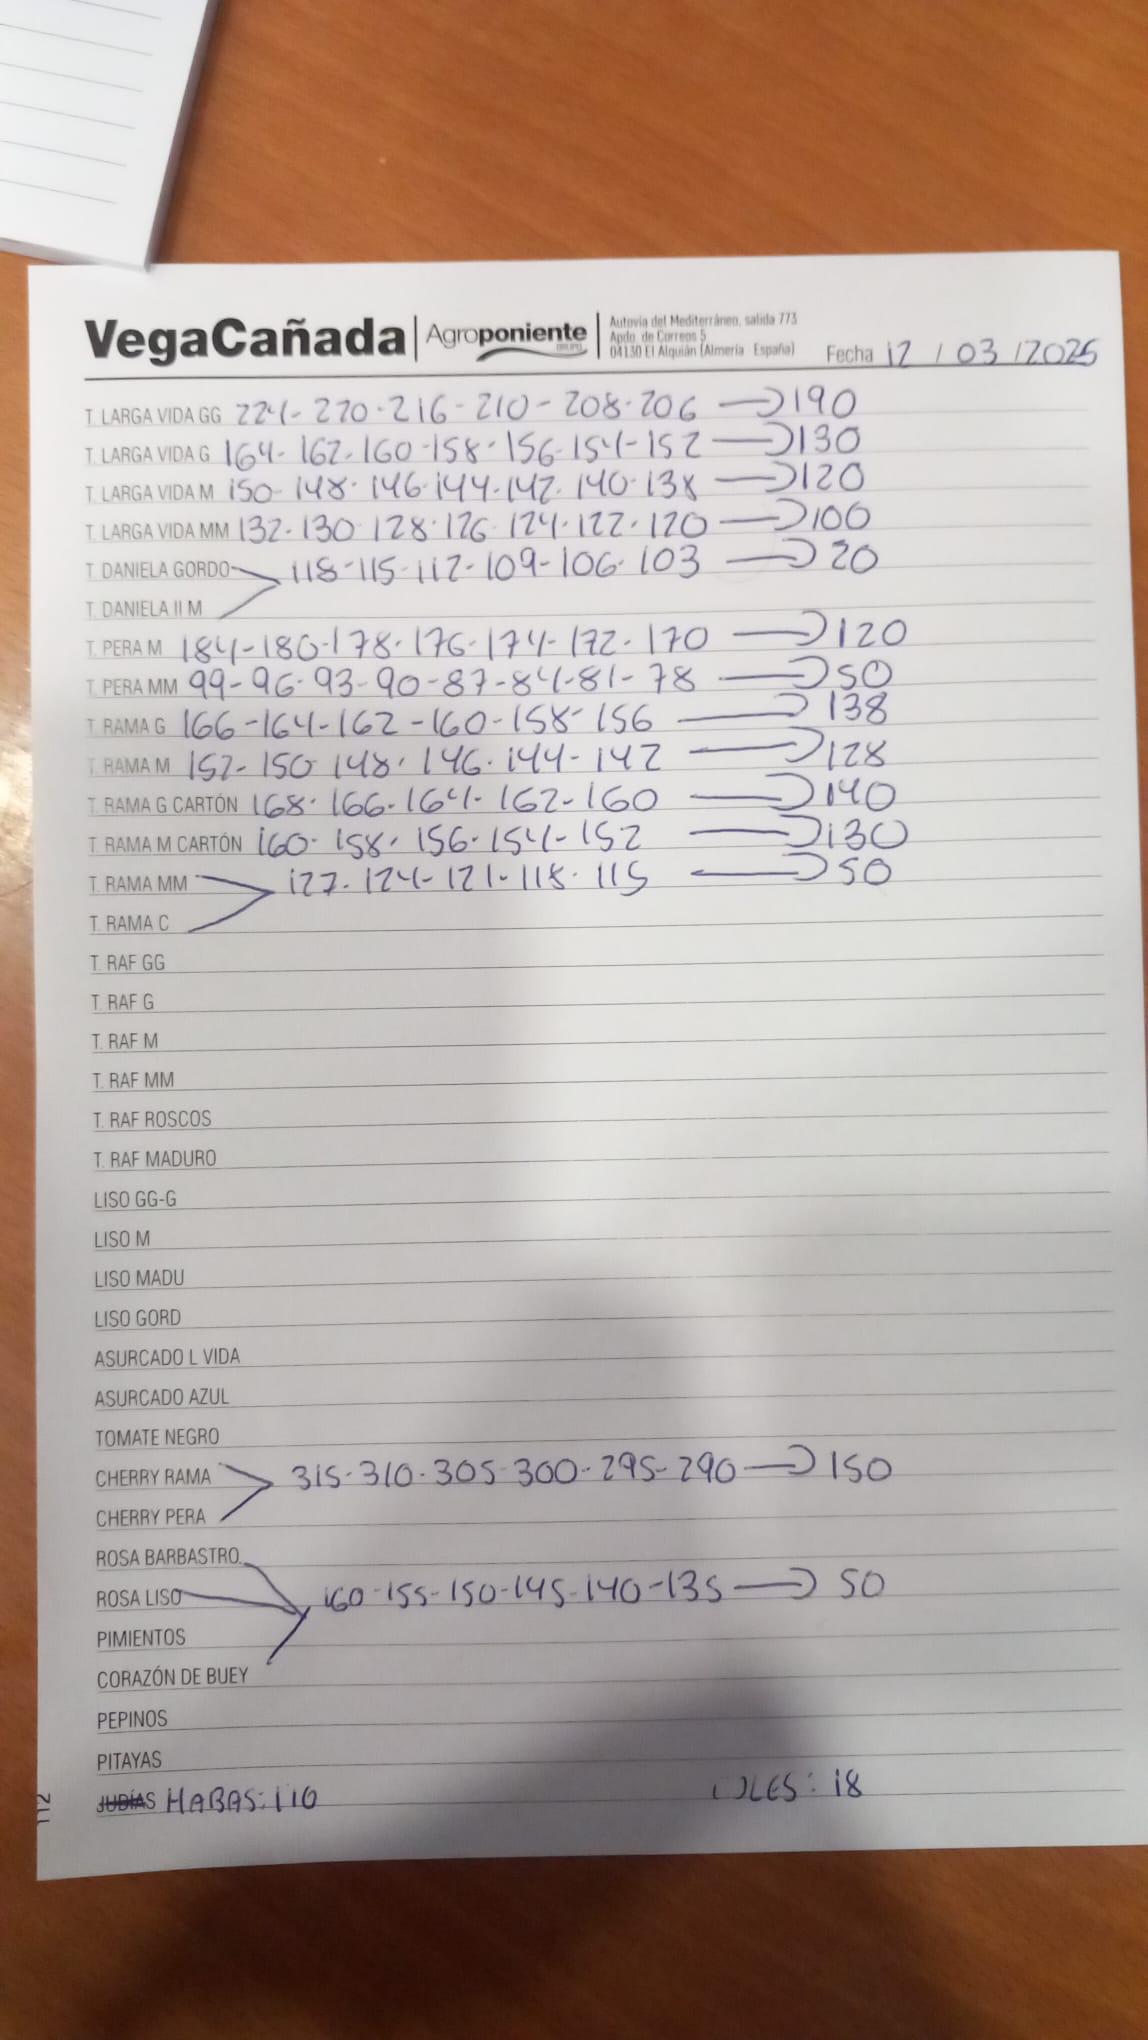 VegaCañada | Agroponiente GRUPO | Autovía del Mediterráneo, salida 773
Apdo. de Correos 5
04130 El Alquián (Almería España)
Fecha 12 / 03 / 2025
T. LARGA VIDA GG 224-220-216-210-208-206 → 190
T. LARGA VIDA G 164-162-160-158-156-154-152 → 130
T. LARGA VIDA M 150-148-146-144-142-140-138 → 120
T. LARGA VIDA MM 132-130-128-126-124-122-120 → 100
T. DANIELA GORDO 118-115-112-109-106-103 → 20
T. DANIELA II M
T. PERA M 184-180-178-176-174-172-170 → 120
T. PERA MM 99-96-93-90-87-84-81-78 → 50
T. RAMA G 166-164-162-160-158-156 → 138
T. RAMA M 152-150-148-146-144-142 → 128
T. RAMA G CARTÓN 168-166-164-162-160 → 140
T. RAMA M CARTÓN 160-158-156-154-152 → 130
T. RAMA MM 127-124-121-118-115 → 50
T. RAMA C
T. RAF GG
T. RAF G
T. RAF M
T. RAF MM
T. RAF ROSCOS
T. RAF MADURO
LISO GG-G
LISO M
LISO MADU
LISO GORD
ASURCADO L VIDA
ASURCADO AZUL
TOMATE NEGRO
CHERRY RAMA 315-310-305-300-295-290 → 150
CHERRY PERA
ROSA BARBASTRO
ROSA LISO 160-155-150-145-140-135 → 50
PIMIENTOS
CORAZÓN DE BUEY
PEPINOS
PITAYAS
JUDÍAS HABAS: 110 : 18
112